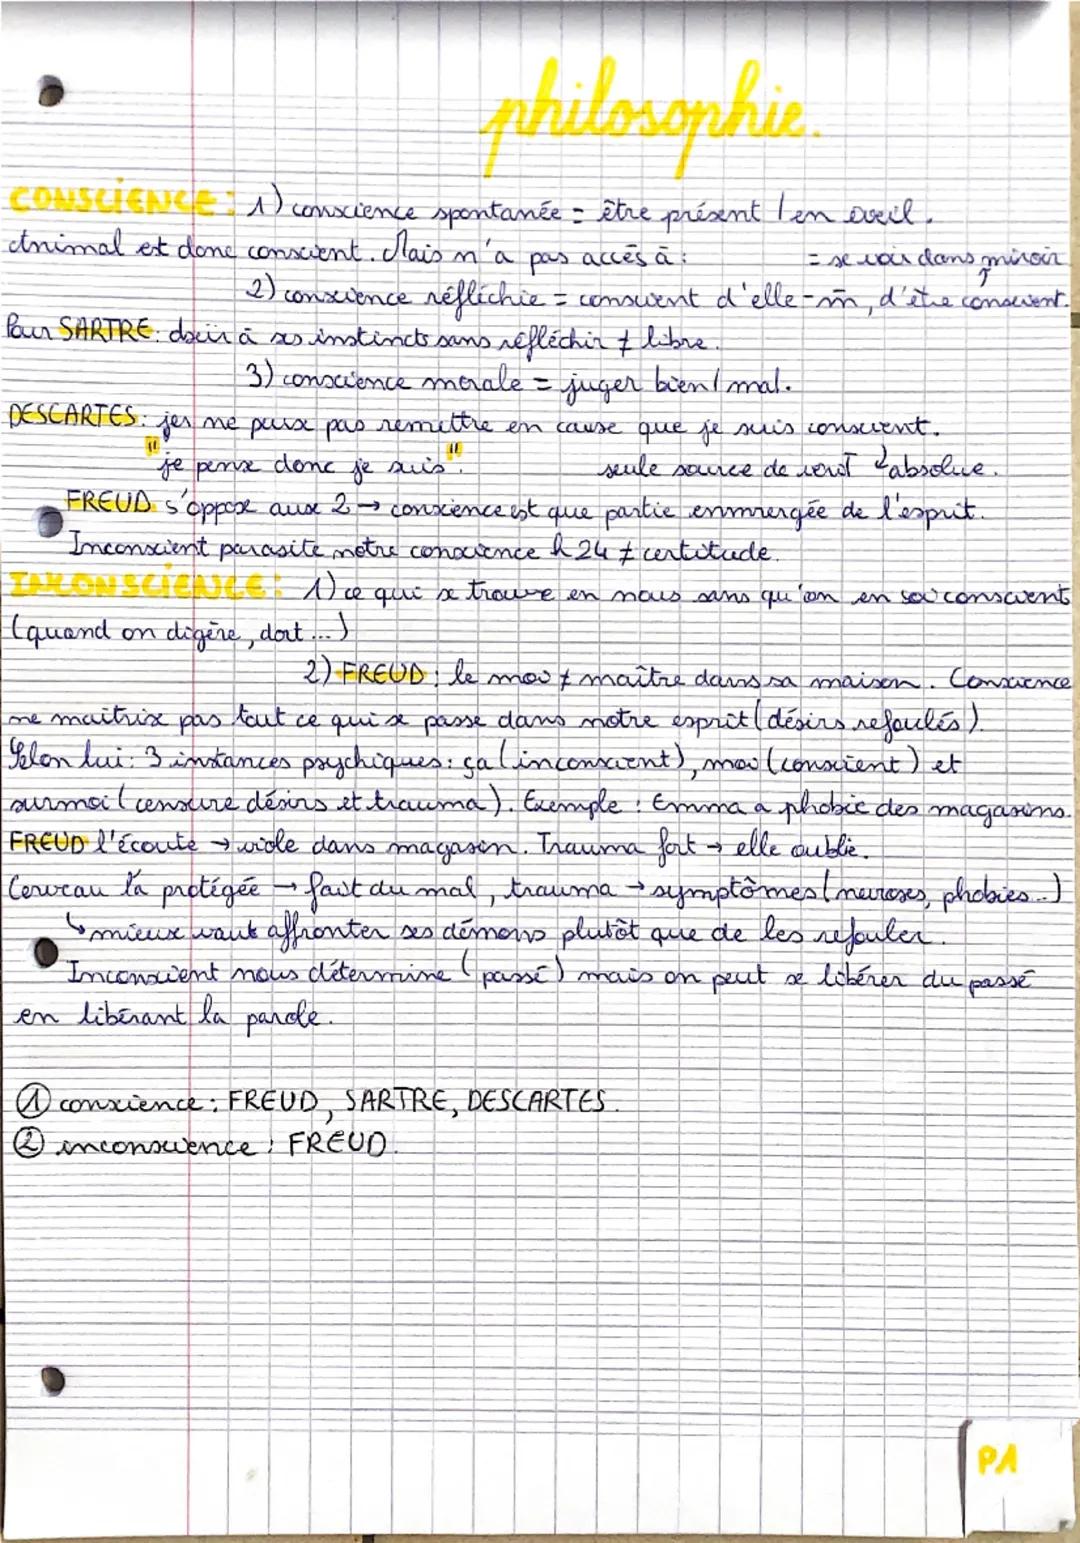 philosophie.
CONSCIENCE: 1) conscience spontanée = être présent / en éveil.
Animal est donc conscient. Mais n'a pas accès à : = se voir dans miroir
2) conscience réfléchie = conscient d'elle-m̄, d'être conscient.
Pour SARTRE: obéir à ses instincts sans réfléchir ≠ libre.
3) conscience morale = juger bien / mal.
DESCARTES: je ne peux pas remettre en cause que je suis conscient.
"je pense donc je suis". seule source de absolue.
FREUD s'oppose aux 2 → conscience est que partie enmergée de l'esprit.
Inconscient parasite notre conscience h24 ≠ certitude.
INCONSCIENCE: 1) ce qui se trouve en nous sans qu'on en soi conscient
(quand on digère, dort ...)
2) FREUD : le moi ≠ maître dans sa maison. Conscience
ne maitrise pas tout ce qui se passe dans notre esprit (désirs refoulés).
Selon lui: 3 instances psychiques: ça (inconscient), moi (conscient) et
surmoi (censure désirs et trauma). Exemple : Emma a phobie des magasins.
FREUD l'écoute → viole dans magasin. Trauma fort → elle oublie.
Cerveau l'a protégée → fait du mal, trauma → symptômes (nevroses, phobies...)
↳ mieux vaut affronter ses démons plutôt que de les refouler.
Inconscient nous détermine (passé) mais on peut se libérer du passé
en libérant la parole.
① conscience : FREUD, SARTRE, DESCARTES.
② inconscience : FREUD.
P1